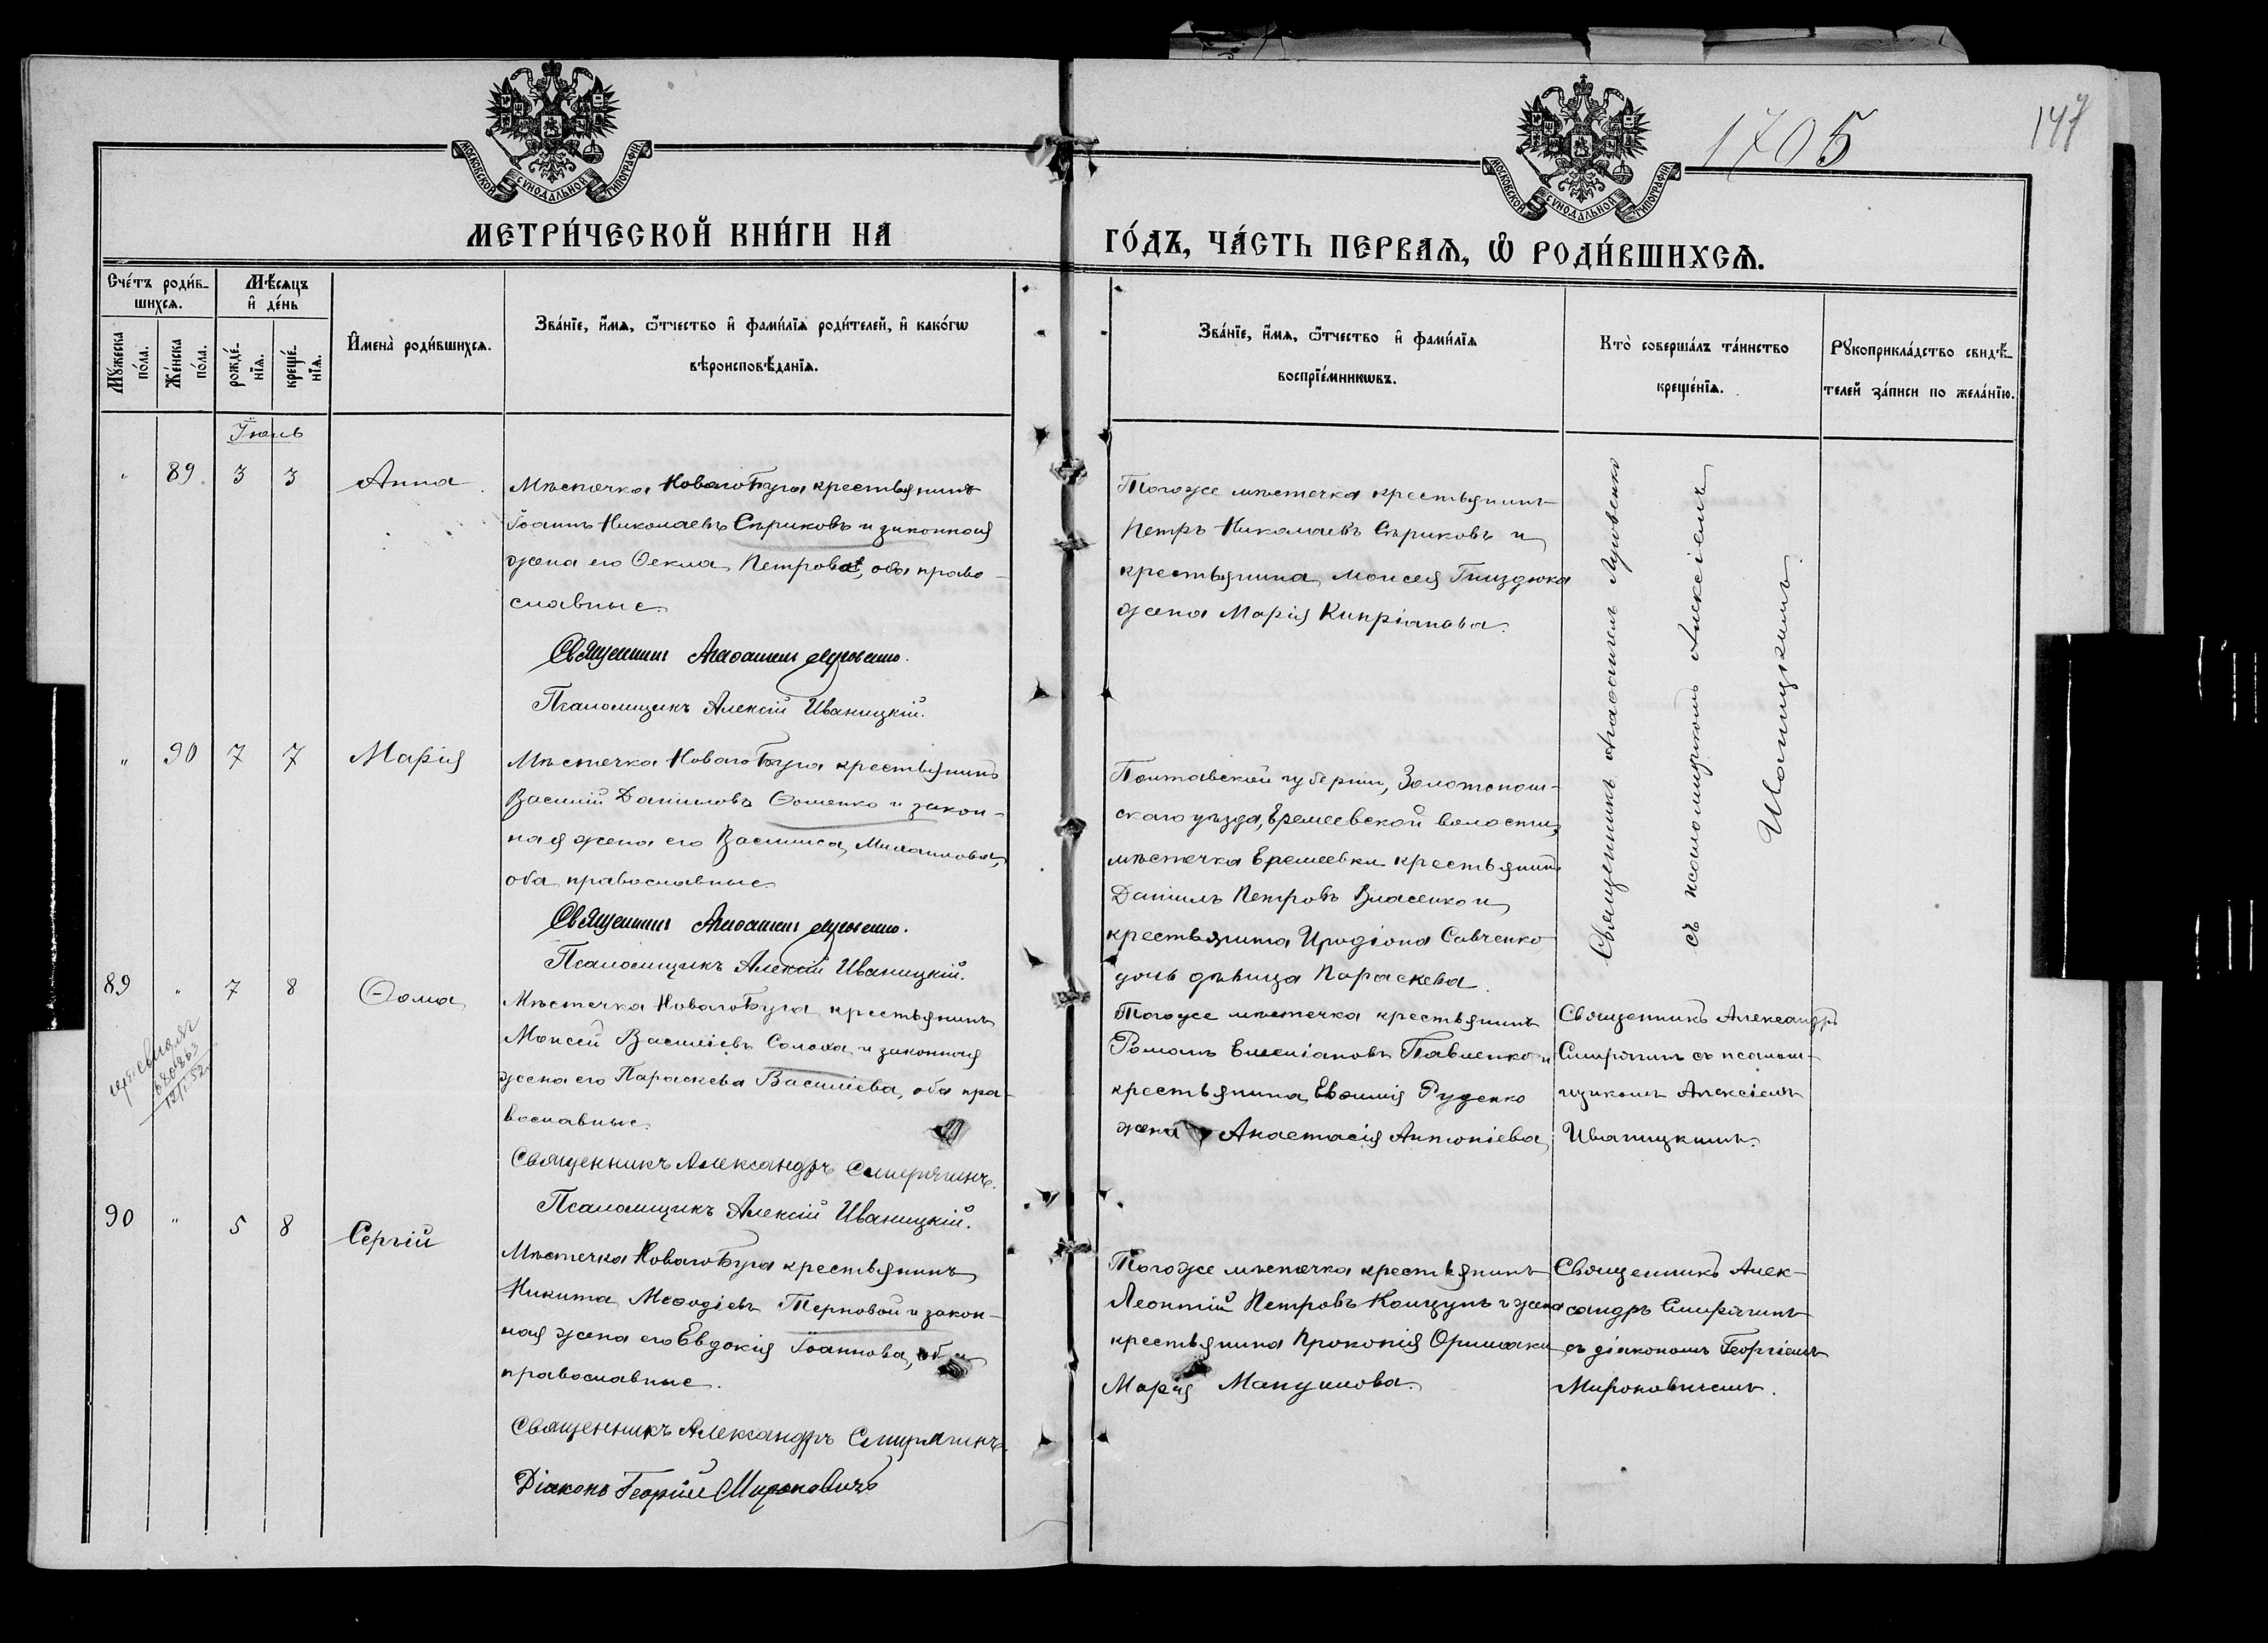 МОСКОВСКОЙ СѴНОДАЛЬНОЙ ТИПОГРАФІИ
МОСКОВСКОЙ СѴНОДАЛЬНОЙ ТИПОГРАФІИ
1705
147
МЕТРИ́ЧЕСКОЙ КНИ́ГИ НА
ГО́ДЪ, ЧА́СТЬ ПЕРВАѦ, Ѡ҆ РОДИ́ВШИХСѦ.
Сче́тъ роди́в-
шихсѧ.
Мꙋжеска
по́ла.
Же́нска
по́ла.
Мѣ́сѧцъ
и҆ де́нь
рожде́-
нїѧ.
креще́-
нїѧ.
И҆мена̀ роди́вшихсѧ.
Зва́нїе, и҆́мѧ, ѻ҆́тчество и҆ фами́лїѧ роди́телей, и҆ како́гѡ
вѣроисповѣ́данїѧ.
Зва́нїе, и҆́мѧ, ѻ҆́тчество и҆ фами́лїѧ
воспрїе́мникѡвъ.
Кто̀ соверша́лъ та́инство
креще́нїѧ.
Рꙋкоприкла́дство свидѣ́-
телей за́писи по жела́нїю.
Іюль
" 89. 3 3 Анна
Мѣстечка Новаго Буга крестьянинъ
Іоаннъ Николаевъ Сѣриковъ и законная
жена его Ѳекла Петрова, оба право-
славные.
Священникъ Аѳанасій
Псаломщикъ Алексій Иваницкій.
Тогоже мѣстечка крестьянинъ
Петръ Николаевъ Сѣриковъ и
крестьянина Моисея Гниздюка
жена Марія Кипріанова.
Священникъ
съ псаломщикомъ Алексіемъ
Иваницкимъ.
" 90 7 7 Марія
Мѣстечка Новаго Буга крестьянинъ
Василій Даниловъ Ѳоменко и закон-
ная жена его Василиса Михаилова,
оба православные.
Священникъ
Псаломщикъ Алексій Иваницкій.
Полтавской губерніи, Золотонош-
скаго уѣзда, Еремеевской волости,
мѣстечка Еремеевки крестьянинъ
Даніилъ Петровъ Власенко и
крестьянина Иродіона Савченко
дочь дѣвица Параскева.
89 " 7 8 Ѳома
Мѣстечка Новаго Буга крестьянинъ
Моисей Василіевъ Солоха и законная
жена его Параскева Василіева, оба пра-
вославные.
Священникъ Александръ Смирягинъ.
Псаломщикъ Алексій Иваницкій.
Тогоже мѣстечка крестьянинъ
Романъ Емеліановъ Павленко и
крестьянина Евѳимія Руденко
жена Анастасія Антоніева
Священникъ Александръ
Смирягинъ съ псалом-
щикомъ Алексіемъ
Иваницкимъ.
90 " 5 8 Сергій
Мѣстечка Новаго Буга крестьянинъ
Никита Меѳодіевъ Терновой и закон-
ная жена его Евдокія Іоаннова, оба
православные.
Священникъ Александръ Смирягинъ.
Діаконъ Георгій Мироновичъ
Тогоже мѣстечка крестьянинъ
Леонтій Петровъ Коцупъ и жена
крестьянина Прокопія
Марія Мануилова.
Священникъ Алек-
сандръ Смирягинъ
съ діакономъ Георгіемъ
Мироновичемъ.